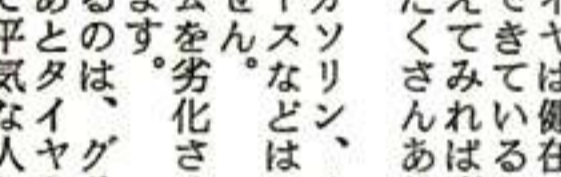 ヤは健在
できている
えてみれば
たくさんあ
ソリン、
スなどは
せん。
を劣化さ
ます。
るのは、グ
あとタイヤ
平気な人